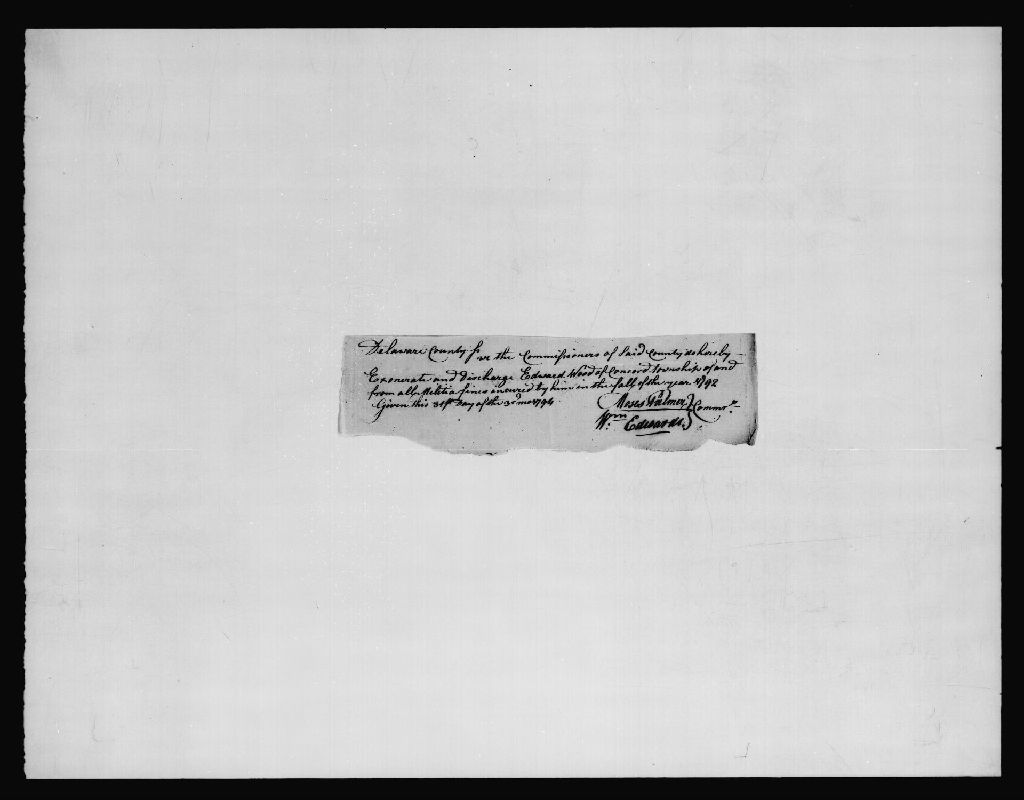 Delaware County ss we the Commissioners of Said County do hereby
Exonerate and Discharge Edward Woods of Concord township of and
from all Melitia fines incured by him in the fall of the year 1792
Given this 31st Day of the 3d mo 1794
Moses Palmer
Wm Edwards
Commrs